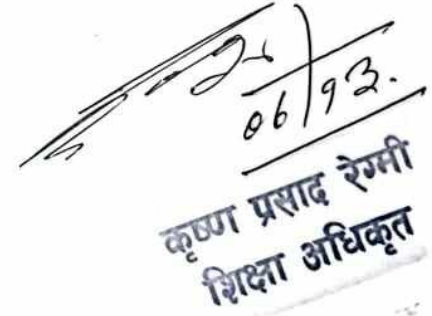 ०६/१३.
कृष्ण प्रसाद रेग्मी
शिक्षा अधिकृत